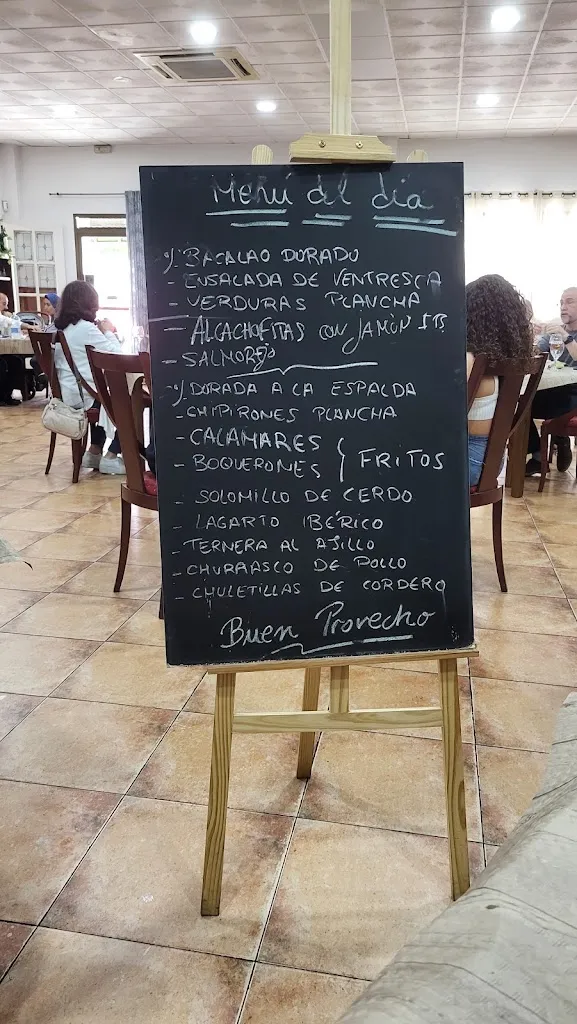 Menú del dia
½ BACALAO DORADO
- ENSALADA DE VENTRESCA
- VERDURAS PLANCHA
- ALCACHOFITAS CON JAMÓN IB
- SALMOREJO
½ DORADA A LA ESPALDA
- CHIPIRONES PLANCHA
- CALAMARES
- BOQUERONES } FRITOS
- SOLOMILLO DE CERDO
- LAGARTO IBÉRICO
- TERNERA AL AJILLO
- CHURRASCO DE POLLO
- CHULETILLAS DE CORDERO
Buen Provecho